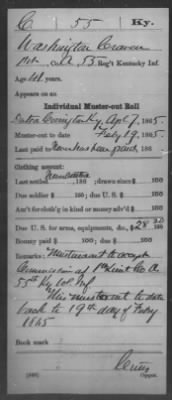 C | 55 | Ky.
Washington Craven
Pvt., Co. A, 55 Reg't Kentucky Inf.
Age years.
Appears on an
Individual Muster-out Roll
Dated Covington Ky Apl 7, 1865.
Muster-out to date Feby 19, 1865
Last paid to Never has been paid, 186
Clothing account:
Last settled , 186 ; drawn since $ 100
Due soldier $ 100; due U. S. $ 100
Am't for cloth'g in kind or money adv'd $ 100
Due U. S. for arms, equipments, &c., $28 100
Bounty paid $ 100; due $ 100
Remarks: Mustered out to accept
Commission as 1st Lieut Co A
55th Ky Vol Inf
This muster out to date
back to 19th day of Feby
1865
Book mark:
Copyist.